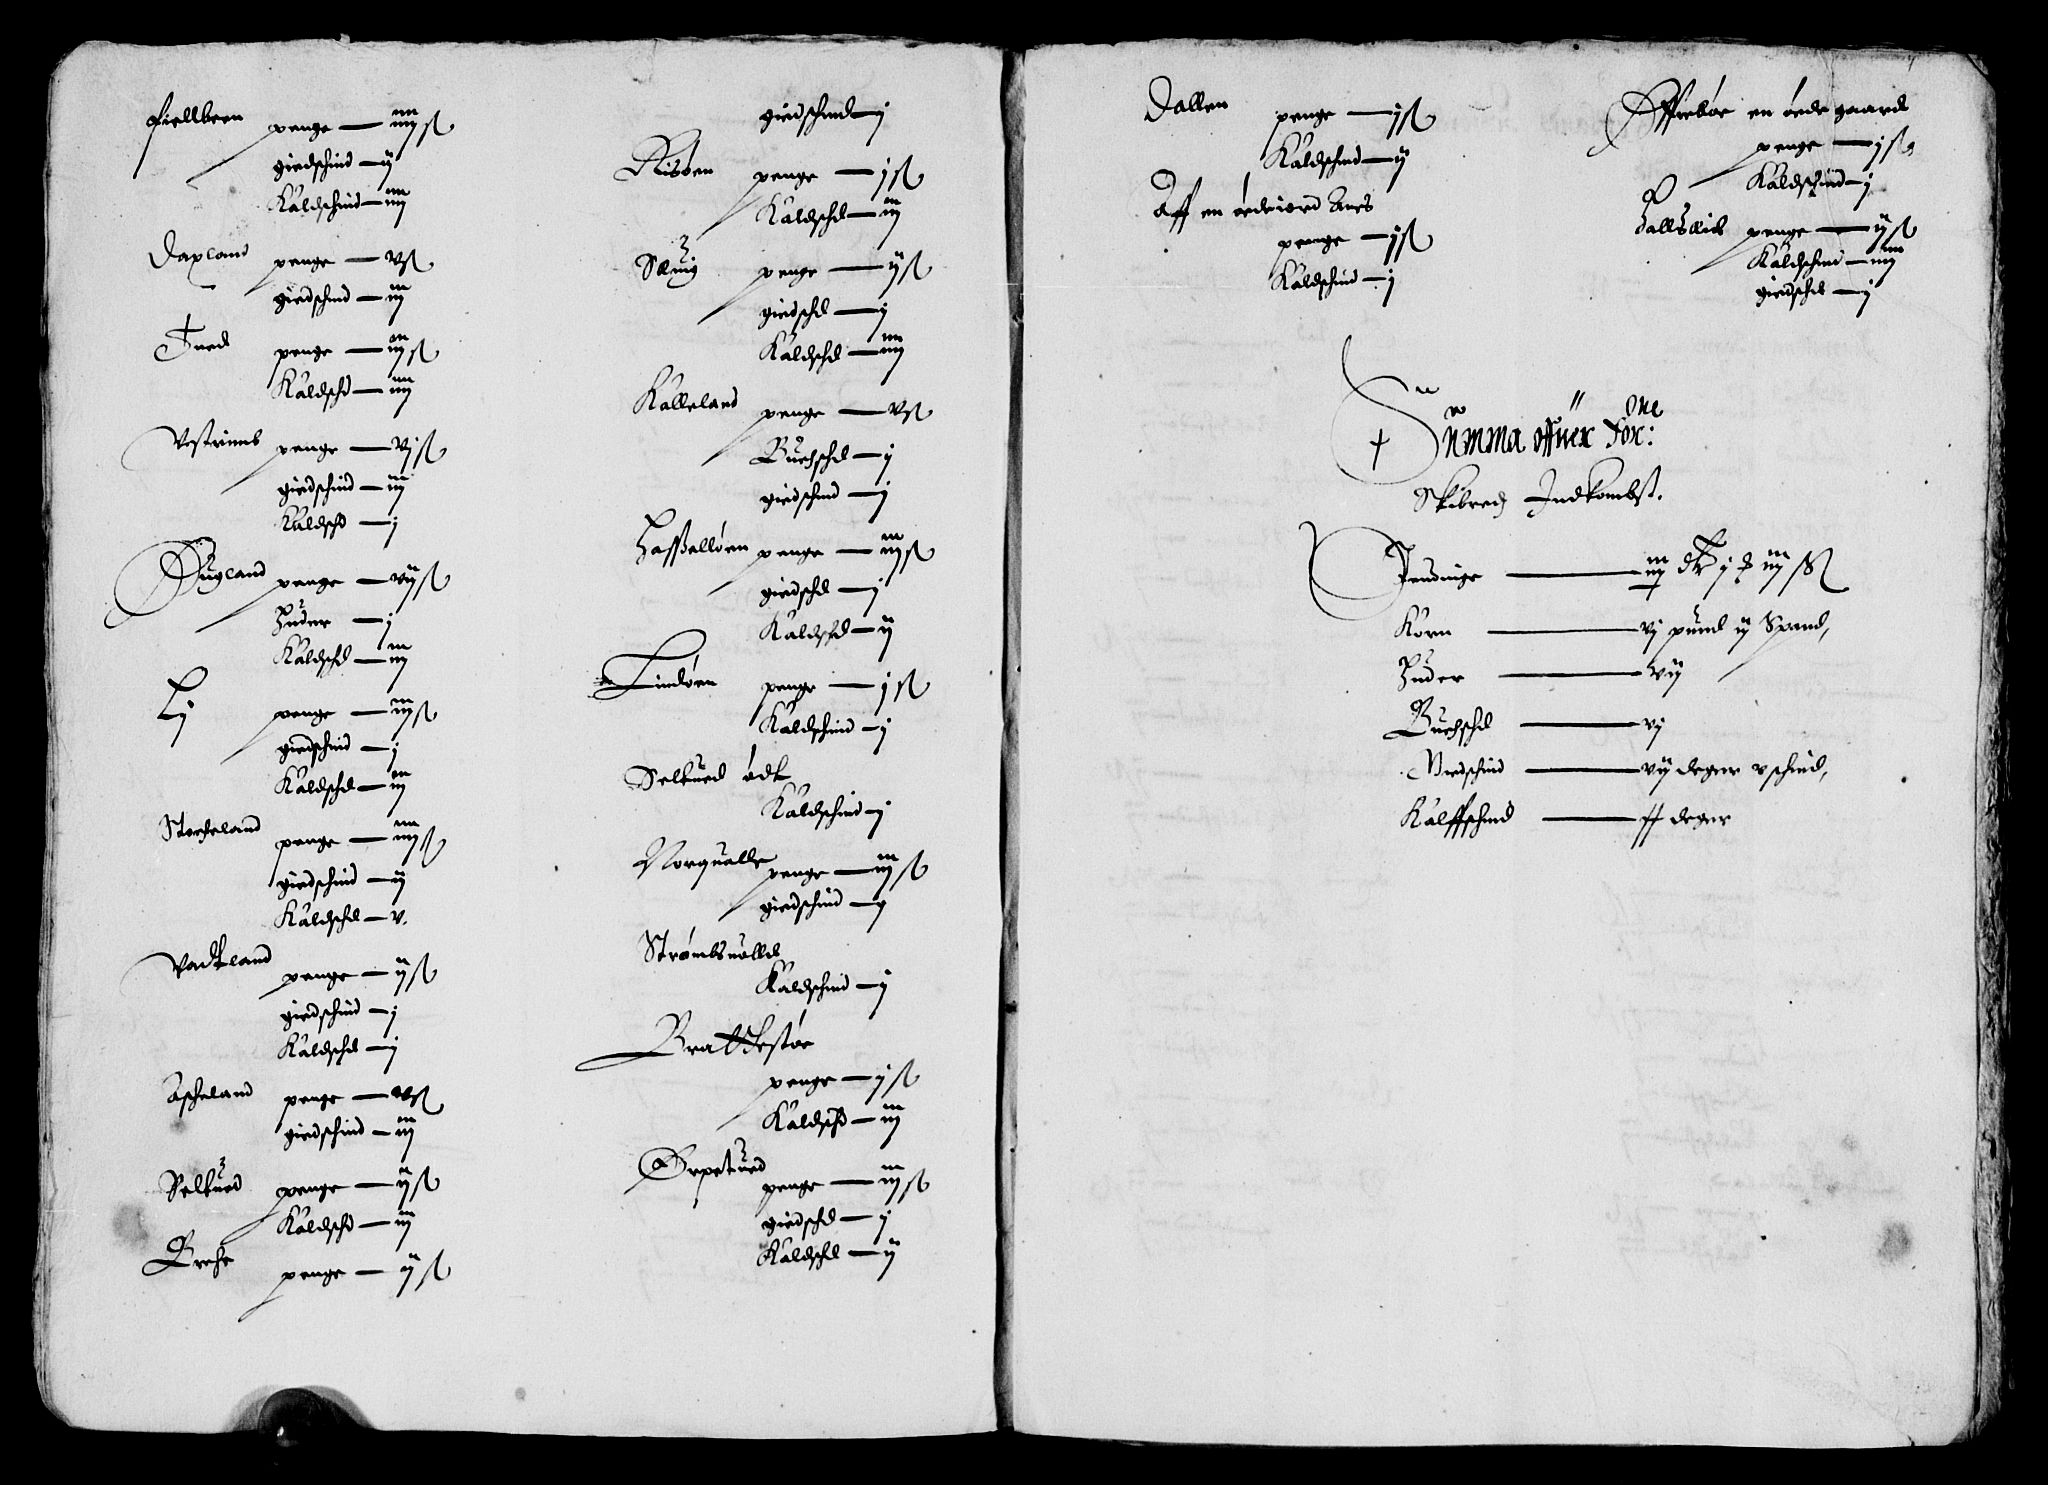 Fiellbeen penge — iiij ß
giedschind — ij
Kaldschind — iiij
Dapland penge — v ß
giedschind — iij
Tued penge — iij ß
Kaldschd — iiij
Vestrimb penge — vj ß
giedschind — iij
Kaldschd — j
Dugland penge — vij ß
Huder — j
Kaldschd — iij
Lij penge — iij ß
giedschind — j
Kaldschd — iij
Stocheland penge — iiij ß
giedschind — ij
Kaldschd — v.
Vadtland penge — ij ß
giedschind — j
Kaldschd — j
Ascheland penge — v ß
giedschind — iij
Selkued penge — ij ß
Kaldschd — iij
Breche penge — ij ß
giedschind — j
Risøen penge — j ß
Kaldschd — iij
Sæuig penge — ij ß
giedschd — j
Kaldschd — iiij
Kalleland penge — v ß
Buchschd — j
giedschind — j
Hasselløen penge — iij ß
giedschd — j
Kaldschd — ij
Lindøen penge — j ß
Kaldschind — j
Selkued ødt
Kaldschind — j
Norqualle penge — iij ß
giedschind — j
Strømbsuolld
Kaldschind — j
Brattestøe
penge — j ß
Kaldschd — iij
Ørpetued
penge — iij ß
giedschd — j
Kaldschd — ij
Dallen penge — j ß
Kaldschind — ij
Aff en ødeiord
penge — j ß
Kaldschind — j
en øede gaard
penge — j ß
Kaldschind — j
penge — ij ß
Kaldschind — iiij
giedschd — j
Summa offuer
Skibred Indkombst.
Pendinge — j iiij ß
Korn — vj pund ij Spand,
Huder — vij
Buchschd — vj
Giedschind — vij deger v schind,
Kalffschind — deger